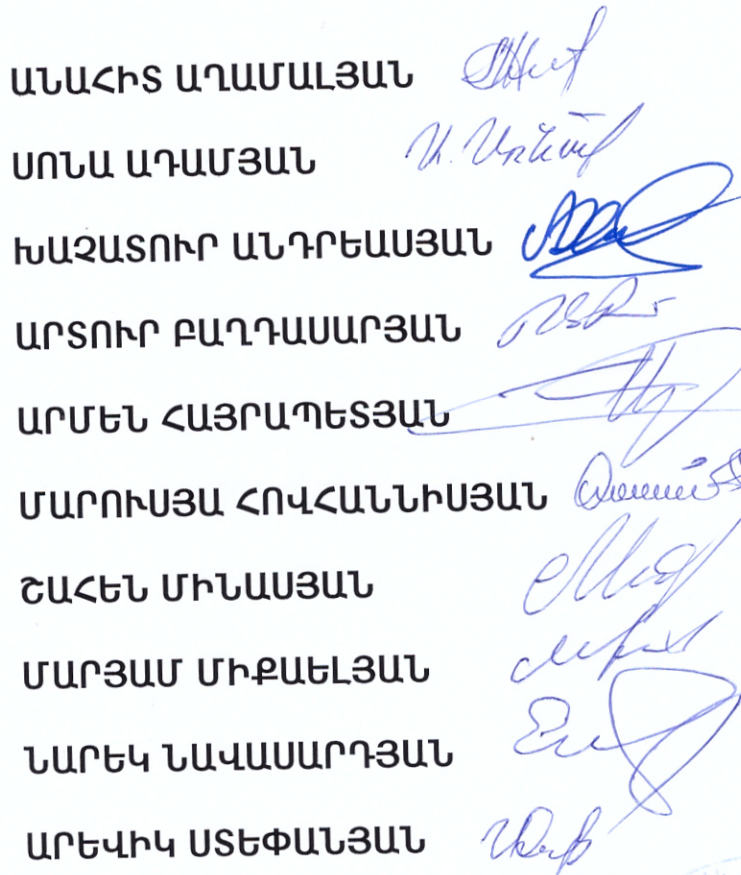 ԱՆԱՀԻՏ ԱՂԱՄԱԼՅԱՆ
ՍՈՆԱ ԱԴԱՄՅԱՆ
ԽԱՉԱՏՈՒՐ ԱՆԴՐԵԱՍՅԱՆ
ԱՐՏՈՒՐ ԲԱՂԴԱՍԱՐՅԱՆ
ԱՐՄԵՆ ՀԱՅՐԱՊԵՏՅԱՆ
ՄԱՐՈՒՍՅԱ ՀՈՎՀԱՆՆԻՍՅԱՆ
ՇԱՀԵՆ ՄԻՆԱՍՅԱՆ
ՄԱՐՅԱՄ ՄԻՔԱԵԼՅԱՆ
ՆԱՐԵԿ ՆԱՎԱՍԱՐԴՅԱՆ
ԱՐԵՎԻԿ ՍՏԵՓԱՆՅԱՆ